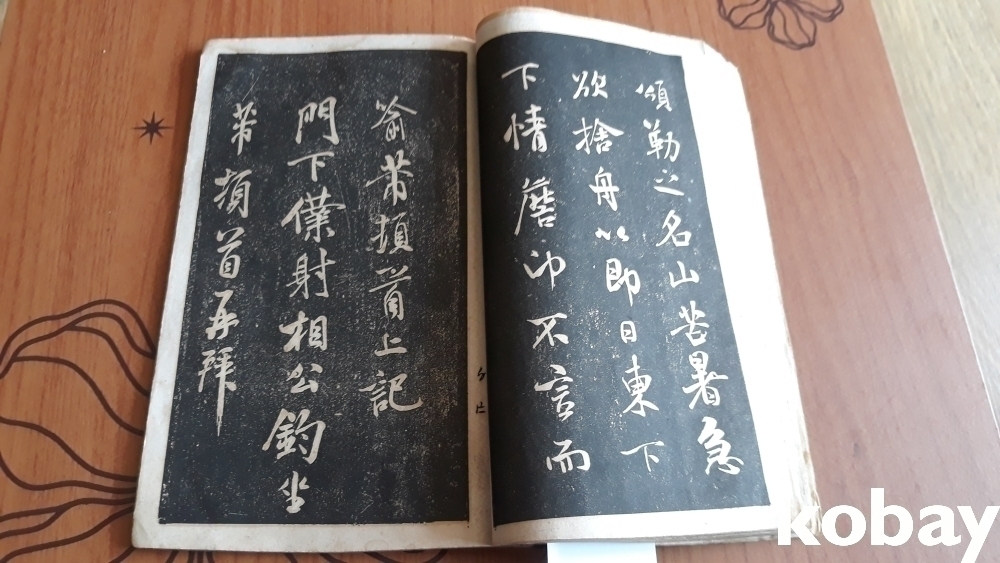 頌勒之名山苦暑急
欲捨舟以即日東下
下情卬不言而
俞芾頓首上記
門下僕射相公鈞坐
芾頓首再拜
kobay